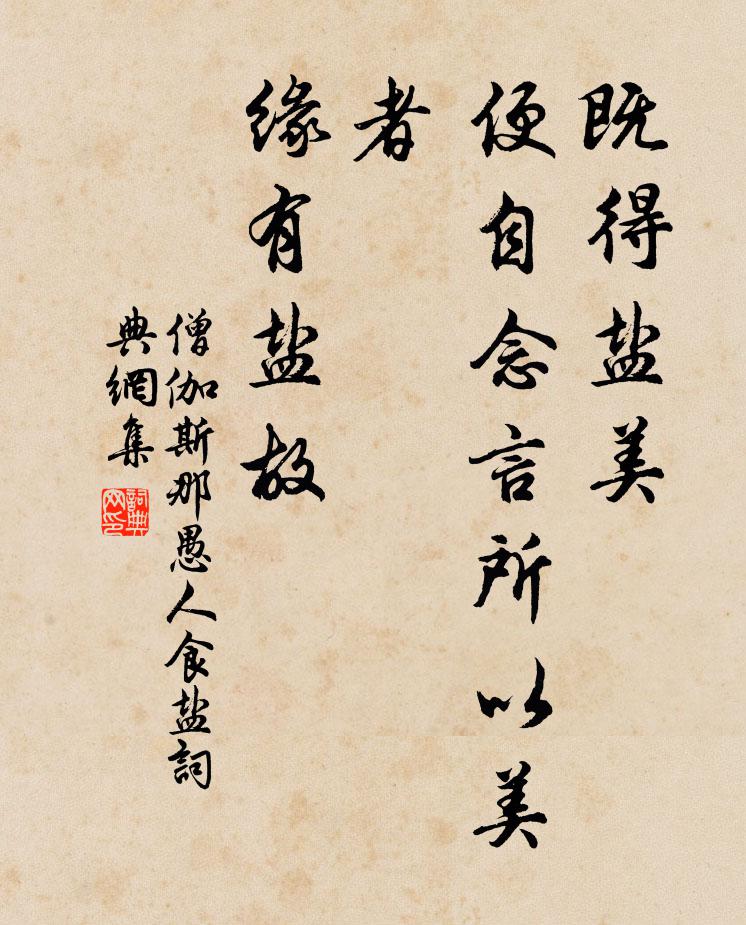 既得盐美
便自念言所以美
者
缘有盐故
僧伽斯那愚人食盐詞
典網集
詞典
网印